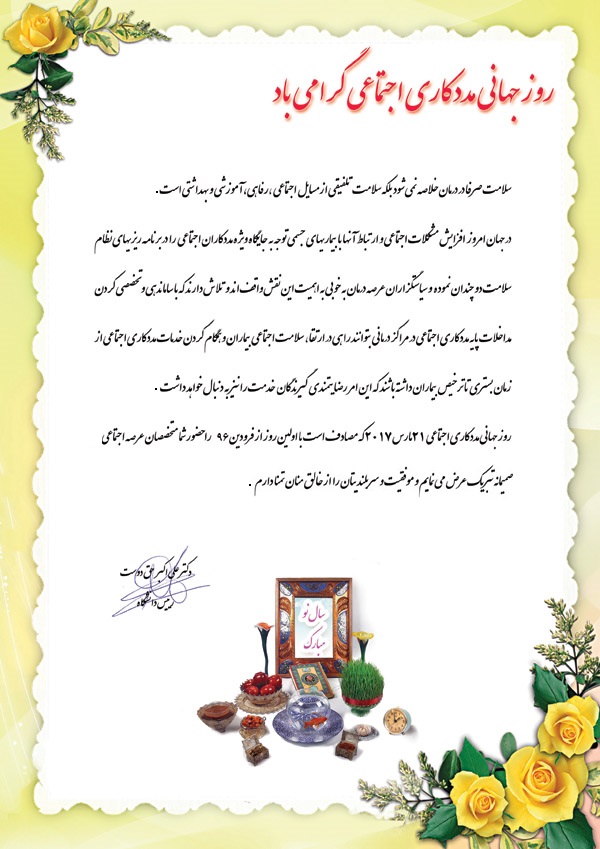 روز جهانی مددکاری اجتماعی گرامی باد
سلامت صرفا در درمان خلاصه نمی شود بلکه سلامت تلفیقی از مسایل اجتماعی ،رفاهی، آموزشی و بهداشتی است .
در جهان امروز افزایش مشکلات اجتماعی و ارتباط آنها با بیماریهای جسمی توجه به جایگاه ویژه مددکاران اجتماعی را در برنامه ریزیهای نظام
سلامت دو چندان نموده و سیاستگزاران عرصه درمان به خوبی به اهمیت این نقش واقف اند و تلاش دارند که با ساماندهی و تخصصی کردن
مداخلات پایه مددکاری اجتماعی در مراکز درمانی بتوانند راهی در ارتقاء سلامت اجتماعی بیماران و همگام کردن خدمات مددکاری اجتماعی از
زمان بستری تا ترخیص بیماران داشته باشند که این امر رضایتمندی گیرندگان خدمت را نیز به دنبال خواهد داشت .
روز جهانی مددکاری اجتماعی ۲۱مارس ۲۰۱۷که مصادف است با اولین روز از فرودین ۹۶ را حضور شما متخصصان عرصه اجتماعی
صمیمانه تبریک عرض می نمایم و موفقیت و سربلندیتان را از خالق منان تمنا دارم .
دکتر علی اکبر حق دوست
رییس دانشگاه
سال نو
مبارک